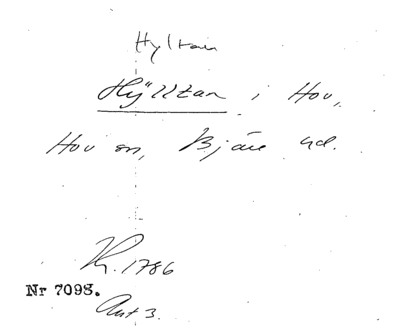 Hyltan
Hÿlltan i Hov,
Hov sn, Bjäre hd.
Kr. 1786
Nr 7098.
Akt 3.